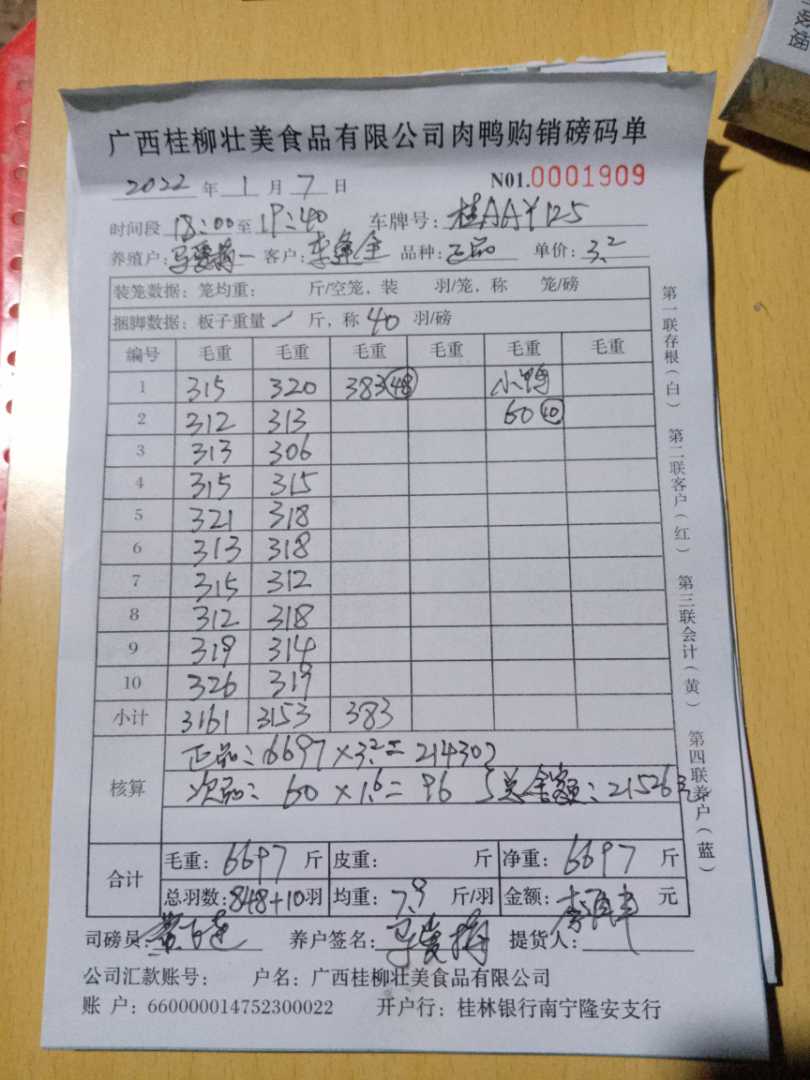 广西桂柳壮美食品有限公司肉鸭购销磅码单
2022 年 1 月 7 日 N01.0001909
时间段 18:00 至 19:40 车牌号: 桂AAY125
养殖户: 客户: 品种: 正品 单价: 3.2
装笼数据: 笼均重: 斤/空笼, 装 羽/笼, 称 笼/磅
捆脚数据: 板子重量 / 斤, 称 40 羽/磅
编号 毛重 毛重 毛重 毛重 毛重 毛重
1 315 320 383 48 小鸭
2 312 313 60 10
3 313 306
4 315 315
5 321 318
6 313 318
7 315 312
8 312 318
9 319 314
10 326 319
小计 3161 3153 383
核算 正品: 6697 × 3.2 = 21430
次品: 60 × 1.6 = 96 总金额: 21526元
合计 毛重: 6697 斤 皮重: 斤 净重: 6697 斤
总羽数: 848+10 羽 均重: 7.9 斤/羽 金额: 元
司磅员: 养户签名: 提货人:
公司汇款账号: 户名: 广西桂柳壮美食品有限公司
账 户: 660000014752300022 开户行: 桂林银行南宁隆安支行
第一联存根(白) 第二联客户(红) 第三联会计(黄) 第四联养户(蓝)